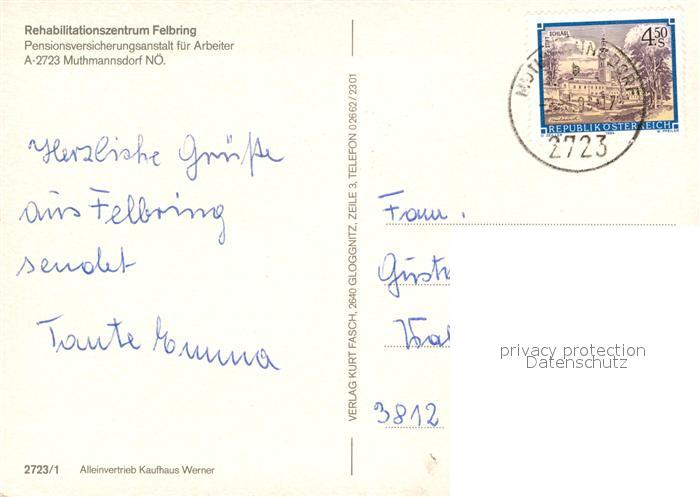 Rehabilitationszentrum Felbring
Pensionsversicherungsanstalt für Arbeiter
A-2723 Muthmannsdorf NÖ.
Herzliche Grüße
aus Felbring
sendet
Tante Emma
2723/1 Alleinvertrieb Kaufhaus Werner
VERLAG KURT FASCH, 2640 GLOGGNITZ, ZEILE 3, TELEFON 02662/2301
STIFT SCHLÄGL
4.50 S
REPUBLIK ÖSTERREICH
2723
Fam.
3812
privacy protection
Datenschutz